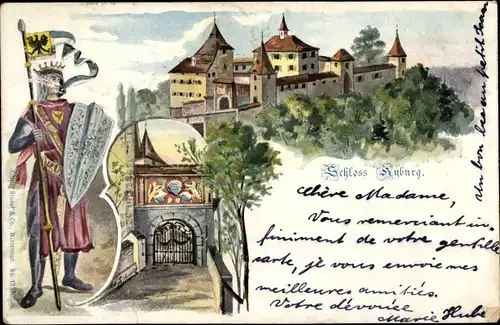 Schloss Kyburg.
Chère Madame,
Vous remerciant in-
finiment de votre gentille
carte, je vous envoie mes
meilleures amitiés.
Votre dévouée
Marie Hube
Un bon beau petit
& Co., Winterthur.